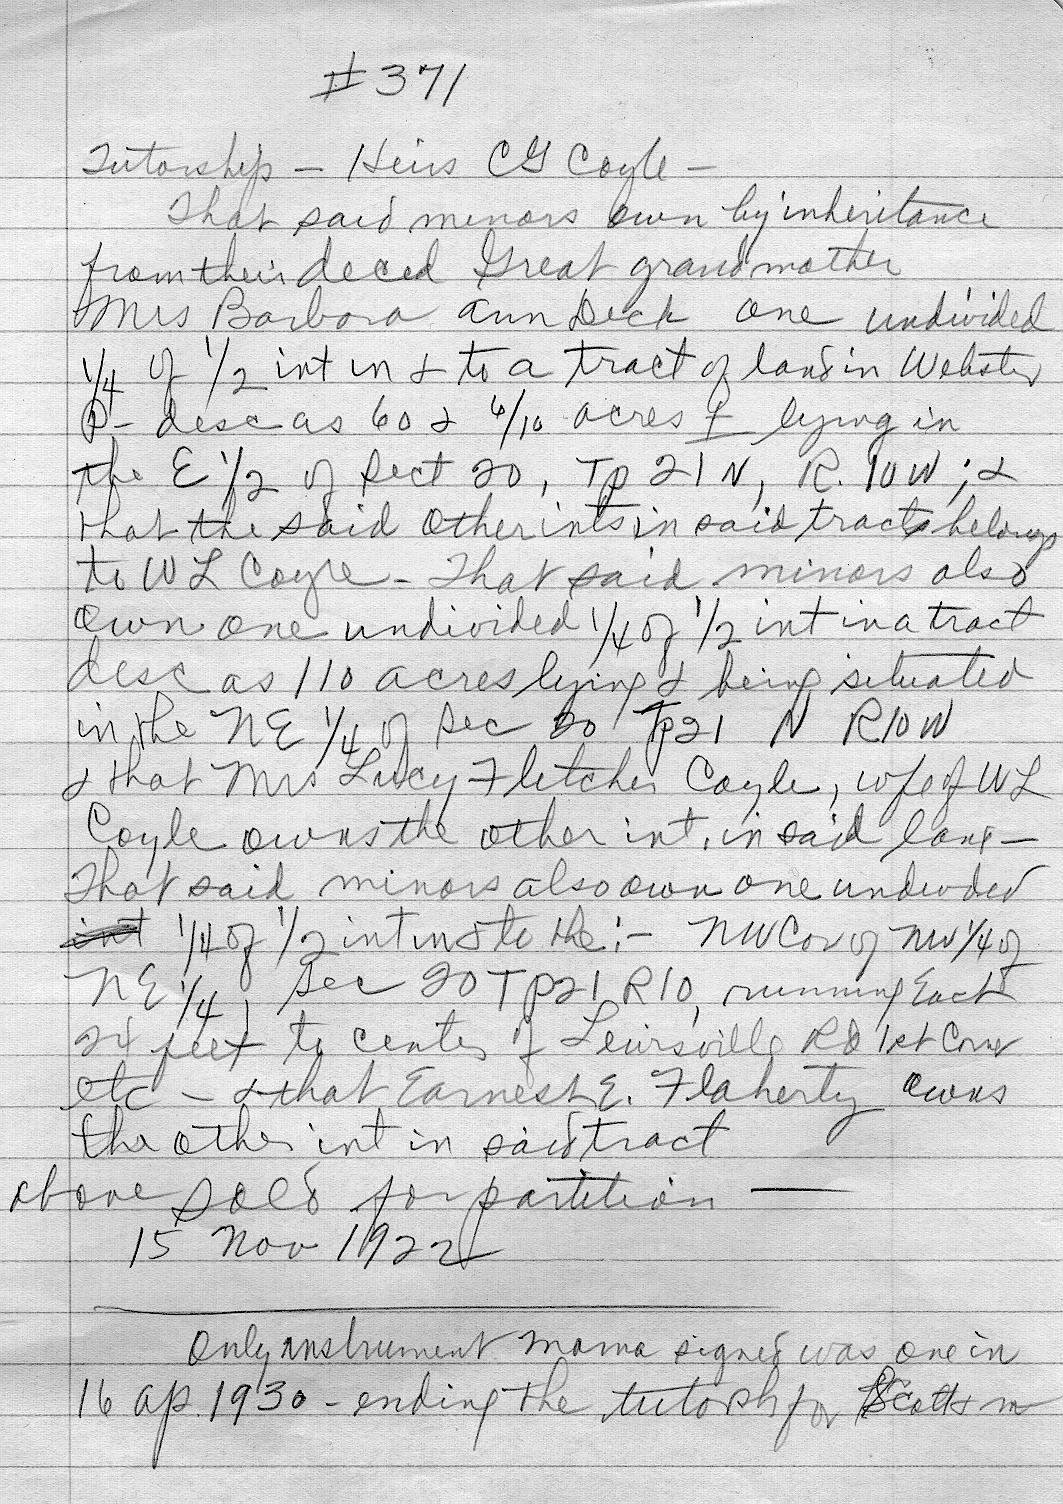 #371
Tutorship - Heirs CG Coyle -
That said minors own by inheritance
from their deced Great grandmother
Mrs Barbara Ann Deck one undivided
1/4 of 1/2 int in & to a tract of land in Webster
P- desc as 60 & 6/10 acres ± lying in
the E 1/2 of Sect 20, Tp 21 N, R. 10 W; &
that the said other ints in said tracts belongs
to W L Coyle - That said minors also
own one undivided 1/4 of 1/2 int in a tract
desc as 110 acres lying & being situated
in the NE 1/4 of Sec 20 Tp 21 N R10W
& that Mrs Lucy Fletcher Coyle, wife of WL
Coyle owns the other int. in said land -
That said minors also own one undivided
int 1/4 of 1/2 int in & to the:- NW Cor of NW 1/4 of
NE 1/4, Sec 20 T P21 R10, running East
24 feet to center of Lewisville Rd 1st Corner
etc - & that Earnest E. Flaherty owns
the other int in said tract
above sold for partition —
15 Nov 1922
Only instrument Mama signed was one in
16 Ap. 1930 - ending the tutorsh for Scott m